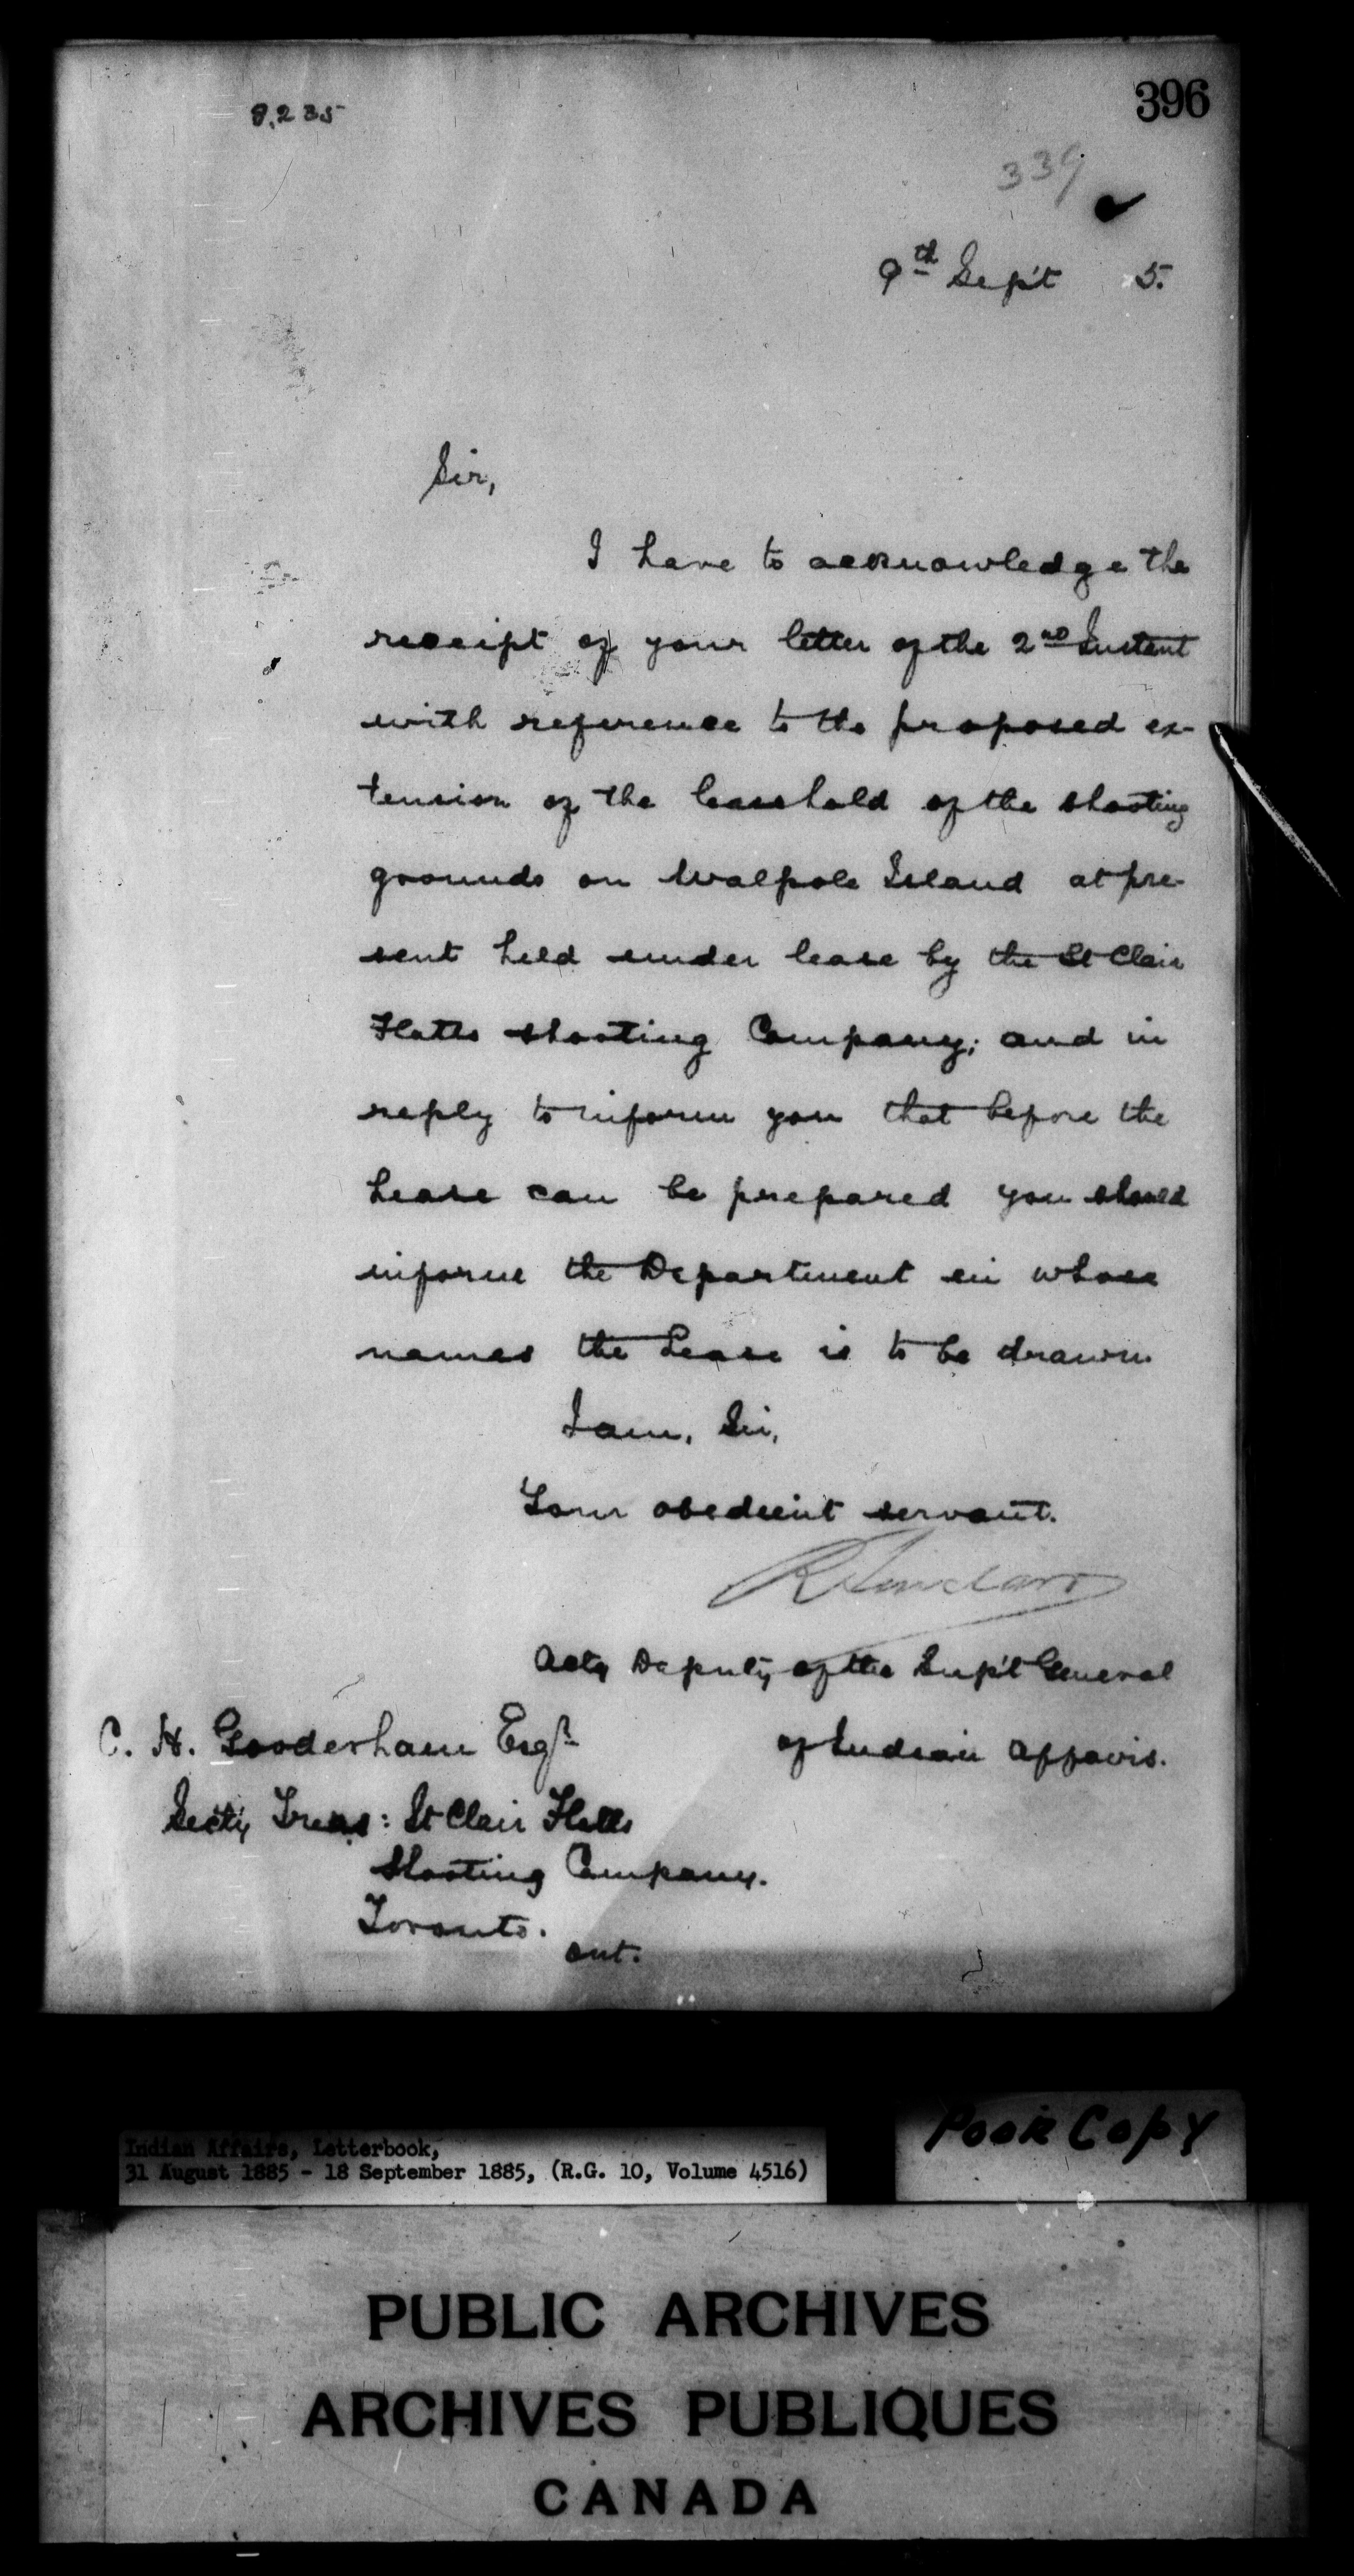 396
8,235
339
9th Sep't 5.
Sir,
I have to acknowledge the
receipt of your letter of the 2nd Instant
with reference to the proposed ex-
tension of the leasehold of the shooting
grounds on Walpole Island at pre-
sent held under lease by the St Clair
Flatts shooting Company; and in
reply to inform you that before the
Lease can be prepared you should
inform the Department in whose
names the Lease is to be drawn.
I am, Sir,
Your obedient servant.
R Sinclair
Actg Deputy of the Sup't General
of Indian Affairs.
C. H. Gooderham Esqr
Secty Treas: St Clair Flatts
Shooting Company.
Toronto.
Ont.
Poor Copy
Indian Affairs, Letterbook,
31 August 1885 - 18 September 1885, (R.G. 10, Volume 4516)
PUBLIC ARCHIVES
ARCHIVES PUBLIQUES
CANADA